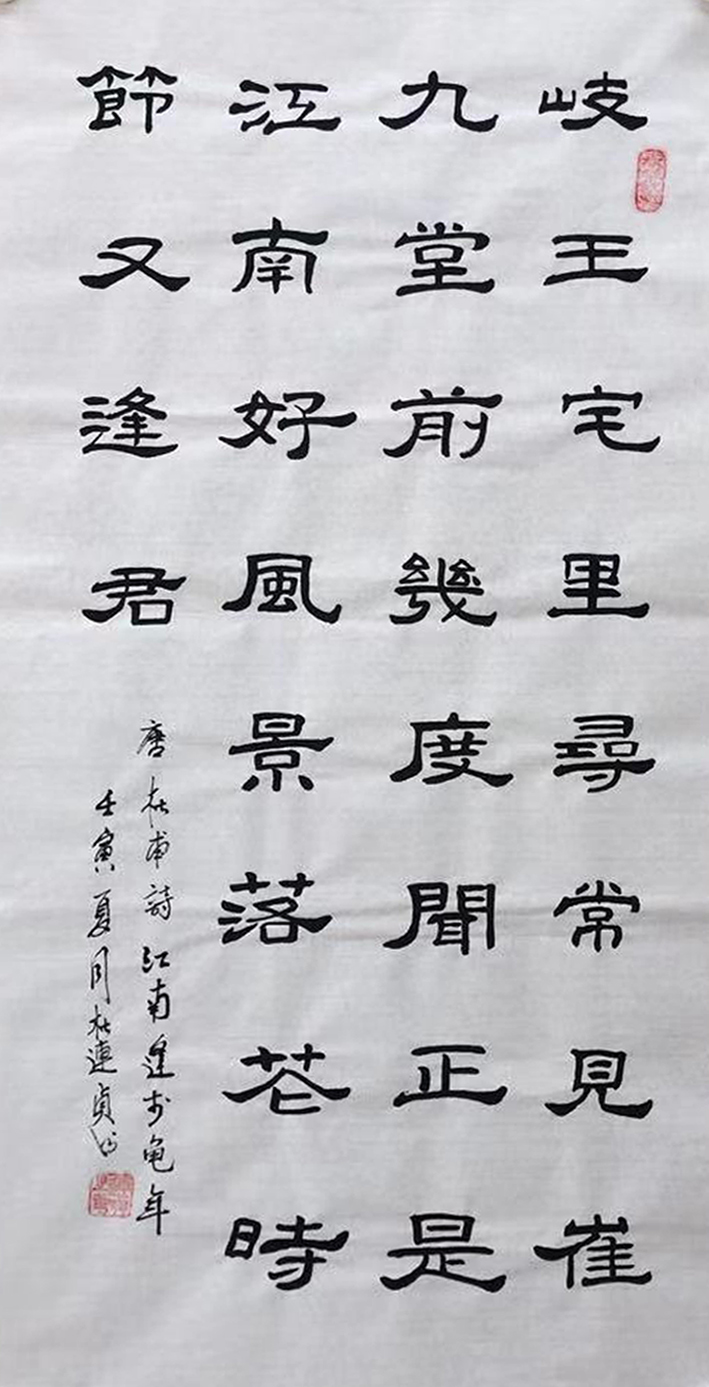 岐王宅里尋常見崔
九堂前幾度聞正是
江南好風景落花時
節又逢君
唐杜甫詩江南逢李龟年
壬寅夏月杜連貞书